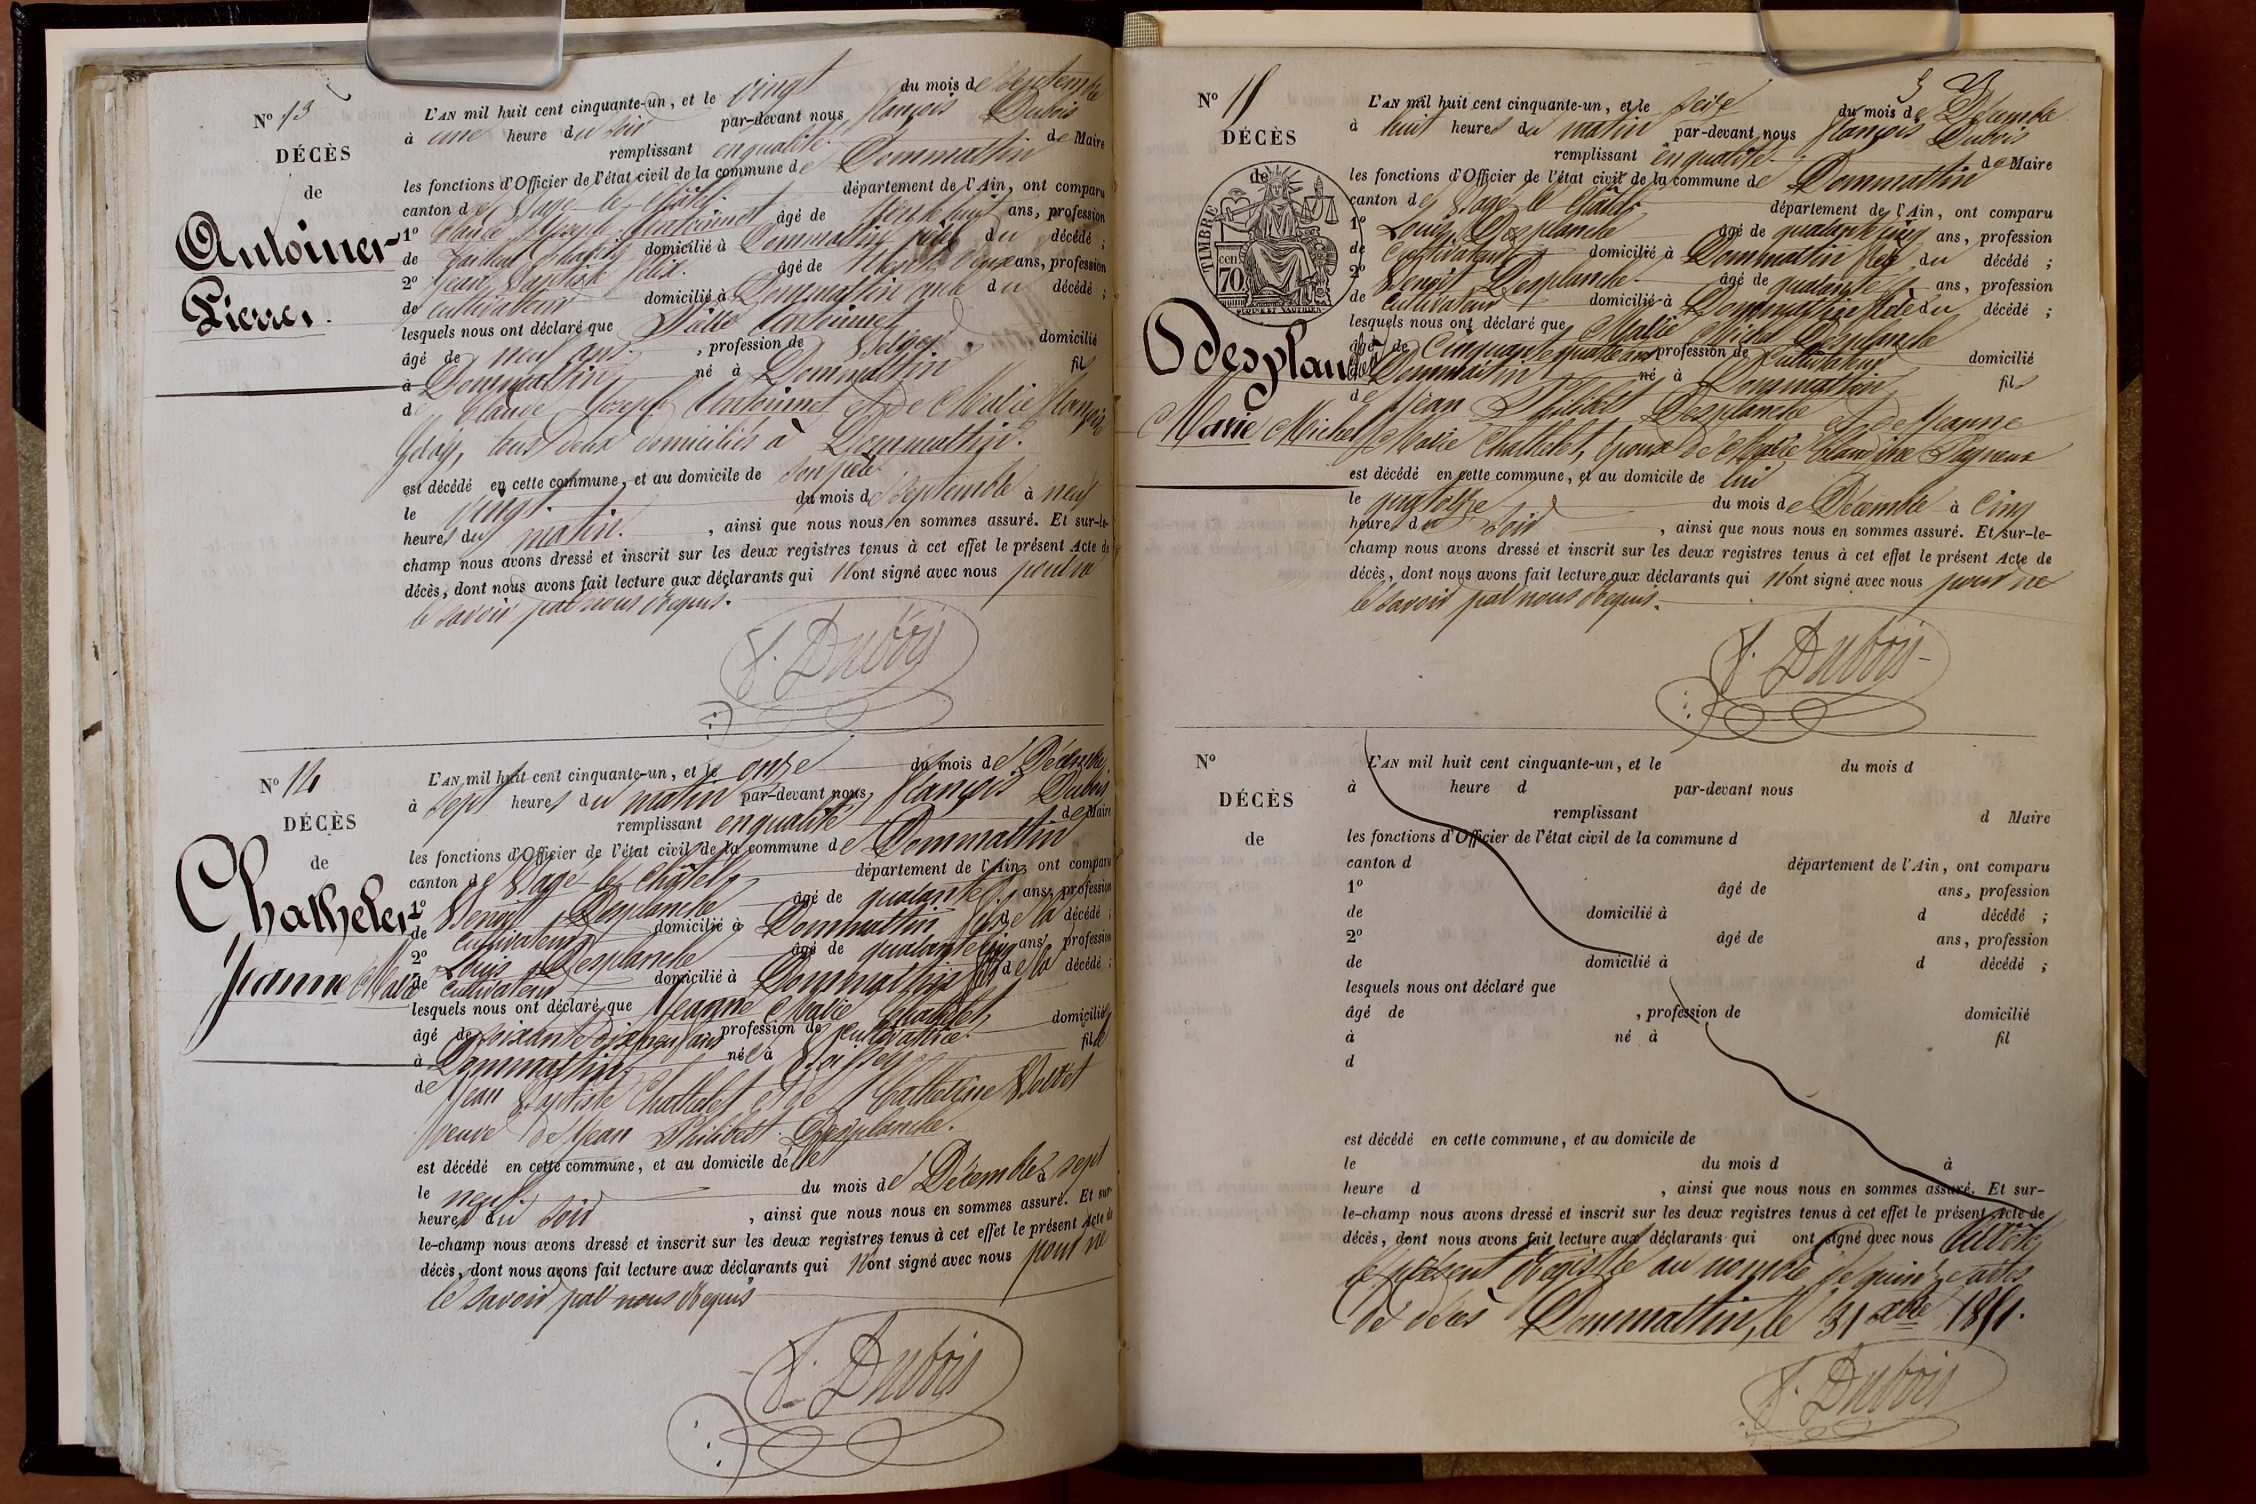 N° 13
DÉCÈS
de
Antoinet
Pierre.
L'AN mil huit cent cinquante-un, et le vingt du mois de Septembre
à une heure du soir par-devant nous François Dubois
remplissant en qualité de Maire
les fonctions d'Officier de l'état civil de la commune de Dommartin
canton de Bagé-le-Châtel département de l'Ain, ont comparu
1° Claude Joseph Antoinet âgé de trente huit ans, profession
de domicilié à Dommartin père du décédé ;
2° Jean Baptiste Félix âgé de trente deux ans, profession
de cultivateur domicilié à Dommartin du décédé ;
lesquels nous ont déclaré que Pierre Antoinet
âgé de neuf ans , profession de Berger domicilié
à Dommartin né à Dommartin fils
de Claude Joseph Antoinet et de Marie Françoise
tous deux domiciliés à Dommartin.
est décédé en cette commune, et au domicile de son père
le vingt du mois de Septembre à neuf
heures du matin , ainsi que nous nous en sommes assuré. Et sur-le-
champ nous avons dressé et inscrit sur les deux registres tenus à cet effet le présent Acte de
décès, dont nous avons fait lecture aux déclarants qui n'ont signé avec nous pour ne
le savoir par nous Requis.
F. Dubois
N° 14
DÉCÈS
de
Chathelet
Jeanne Marie
L'AN mil huit cent cinquante-un, et le onze du mois de Décembre
à sept heures du matin par-devant nous François Dubois
remplissant en qualité de Maire
les fonctions d'Officier de l'état civil de la commune de Dommartin
canton de Bagé-le-Châtel département de l'Ain, ont comparu
1° Benoît Desplanche âgé de quarante ans, profession
de cultivateur domicilié à Dommartin fils de la décédé ;
2° Louis Desplanche âgé de quarante cinq ans, profession
de cultivateur domicilié à Dommartin fils de la décédé ;
lesquels nous ont déclaré que Jeanne Marie Chathelet
âgé de soixante dix neuf ans profession de cultivatrice domiciliée
à Dommartin née à Boissey fille
de Jean Baptiste Chathelet et de Catherine
veuve de Jean Philibert Desplanche.
est décédé en cette commune, et au domicile de
le neuf du mois de Décembre à sept
heures du soir , ainsi que nous nous en sommes assuré. Et sur-
le-champ nous avons dressé et inscrit sur les deux registres tenus à cet effet le présent Acte de
décès, dont nous avons fait lecture aux déclarants qui n'ont signé avec nous pour ne
le savoir par nous Requis
F. Dubois
N° 15
DÉCÈS
de
TIMBRE
cen
70
Desplanche
Marie Michel
L'AN mil huit cent cinquante-un, et le seize du mois de Décembre
à huit heures du matin par-devant nous François Dubois
remplissant en qualité de Maire
les fonctions d'Officier de l'état civil de la commune de Dommartin
canton de Bagé-le-Châtel département de l'Ain, ont comparu
1° Louis Desplanche âgé de quarante cinq ans, profession
de cultivateur domicilié à Dommartin frère du décédé ;
2° Benoît Desplanche âgé de quarante ans, profession
de cultivateur domicilié à Dommartin frère du décédé ;
lesquels nous ont déclaré que Marie Michel Desplanche
âgé de Cinquante quatre ans profession de cultivateur domicilié
à Dommartin né à Dommartin fils
de Jean Philibert Desplanche et de Jeanne
Marie Chathelet, époux de Marie Claudine
est décédé en cette commune, et au domicile de lui
le quatorze du mois de Décembre à Cinq
heures du soir , ainsi que nous nous en sommes assuré. Et sur-le-
champ nous avons dressé et inscrit sur les deux registres tenus à cet effet le présent Acte de
décès, dont nous avons fait lecture aux déclarants qui n'ont signé avec nous pour ne
le savoir par nous Requis.
F. Dubois
N°
DÉCÈS
de
L'AN mil huit cent cinquante-un, et le du mois d
à heure d par-devant nous
remplissant d Maire
les fonctions d'Officier de l'état civil de la commune d
canton d département de l'Ain, ont comparu
1° âgé de ans, profession
de domicilié à d décédé ;
2° âgé de ans, profession
de domicilié à d décédé ;
lesquels nous ont déclaré que
âgé de , profession de domicilié
à né à fil
d
est décédé en cette commune, et au domicile de
le du mois d à
heure d , ainsi que nous nous en sommes assuré. Et sur-
le-champ nous avons dressé et inscrit sur les deux registres tenus à cet effet le présent Acte de
décès, dont nous avons fait lecture aux déclarants qui ont signé avec nous Arrêté
le présent Registre au nombre de quinze actes
de décès Dommartin, le 31 Xbre 1851.
F. Dubois